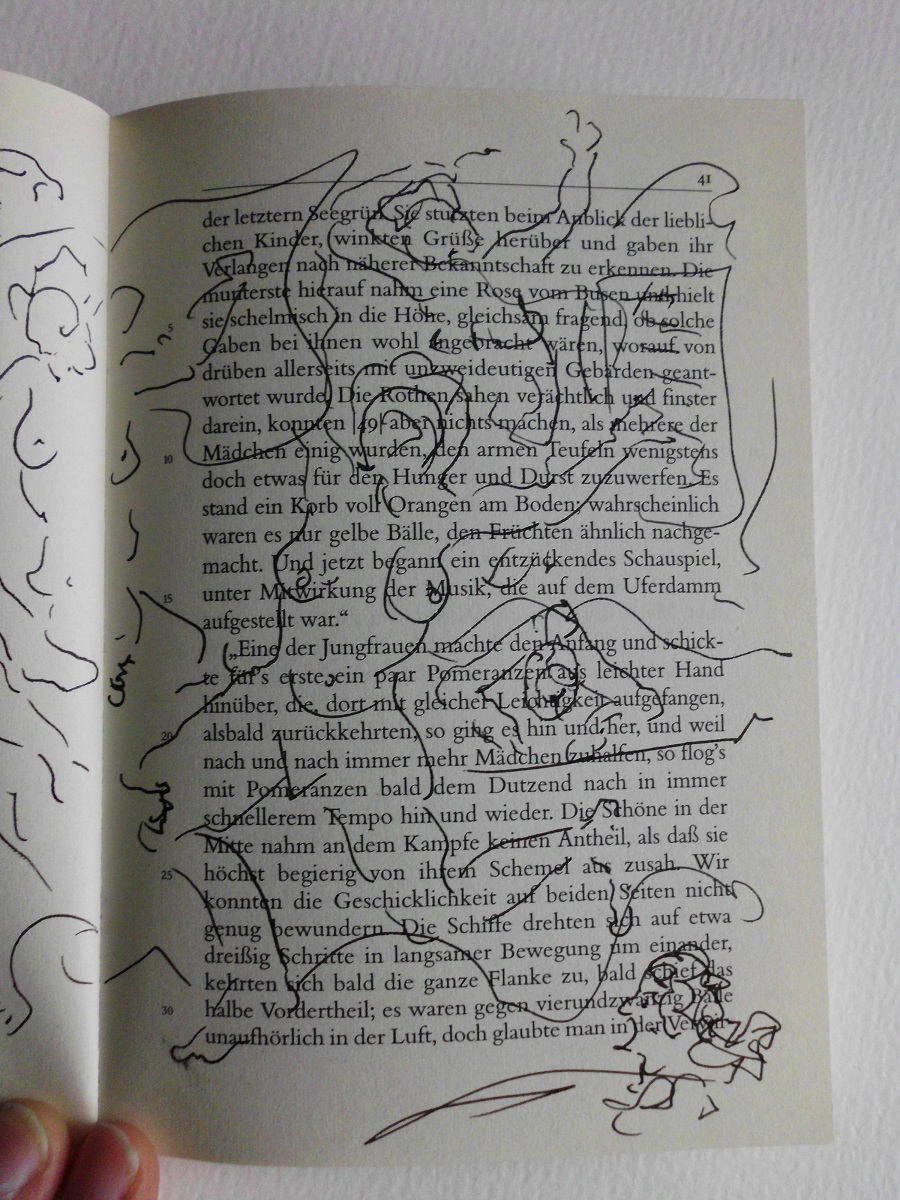 41
der letztern Seegrün. Sie stutzten beim Anblick der liebli-
chen Kinder, winkten Grüße herüber und gaben ihr
Verlangen nach näherer Bekanntschaft zu erkennen. Die
munterste hierauf nahm eine Rose vom Busen und hielt
5
sie schelmisch in die Höhe, gleichsam fragend, ob solche
Gaben bei ihnen wohl angebracht wären, worauf von
drüben allerseits mit unzweideutigen Gebärden geant-
wortet wurde. Die Rothen sahen verächtlich und finster
darein, konnten |49| aber nichts machen, als mehrere der
10 Mädchen einig wurden, den armen Teufeln wenigstens
doch etwas für den Hunger und Durst zuzuwerfen. Es
stand ein Korb voll Orangen am Boden; wahrscheinlich
waren es nur gelbe Bälle, den Früchten ähnlich nachge-
macht. Und jetzt begann ein entzückendes Schauspiel,
15 unter Mitwirkung der Musik, die auf dem Uferdamm
aufgestellt war.“
„Eine der Jungfrauen machte den Anfang und schick-
te für’s erste ein paar Pomeranzen aus leichter Hand
hinüber, die, dort mit gleicher Leichtigkeit aufgefangen,
20 alsbald zurückkehrten, so ging es hin und her, und weil
nach und nach immer mehr Mädchen zuhalfen, so flog’s
mit Pomeranzen bald dem Dutzend nach in immer
schnellerem Tempo hin und wieder. Die Schöne in der
Mitte nahm an dem Kampfe keinen Antheil, als daß sie
25 höchst begierig von ihrem Schemel aus zusah. Wir
konnten die Geschicklichkeit auf beiden Seiten nicht
genug bewundern. Die Schiffe drehten sich auf etwa
dreißig Schritte in langsamer Bewegung um einander,
kehrten sich bald die ganze Flanke zu, bald schief das
30 halbe Vordertheil; es waren gegen vierundzwanzig Bälle
unaufhörlich in der Luft, doch glaubte man in der Verwir-